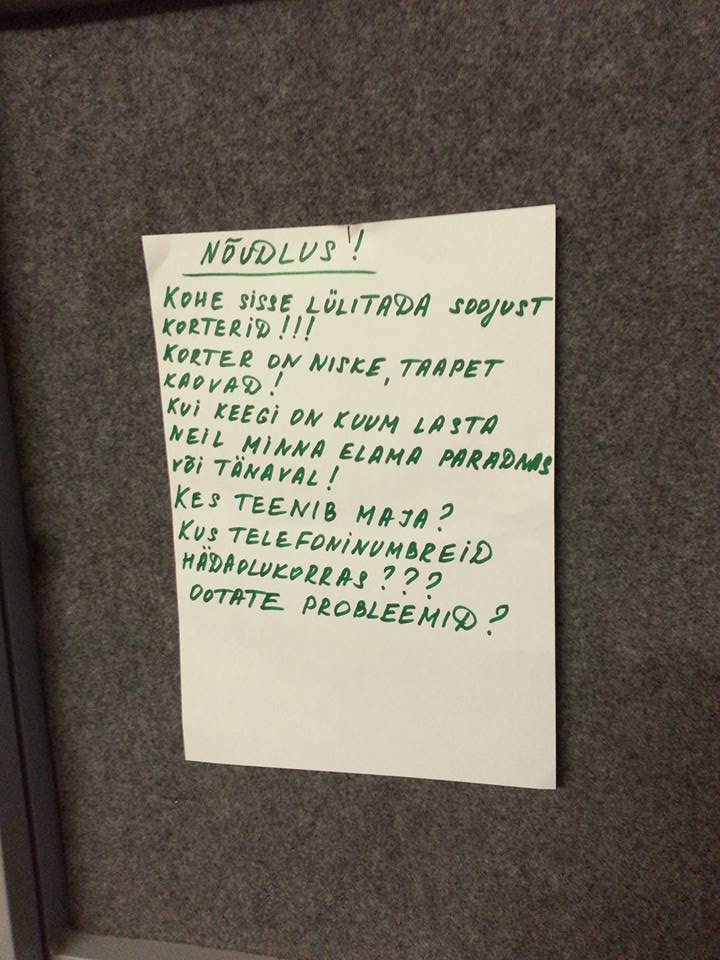 NÕUDLUS!
KOHE SISSE LÜLITADA SOOJUST
KORTERID!!!
KORTER ON NISKE, TAAPET
KAOVAD!
KUI KEEGI ON KUUM LASTA
NEIL MINNA ELAMA PARADNAS
VÕI TÄNAVAL!
KES TEENIB MAJA?
KUS TELEFONINUMBREID
HÄDAOLUKORRAS???
OOTATE PROBLEEMID?